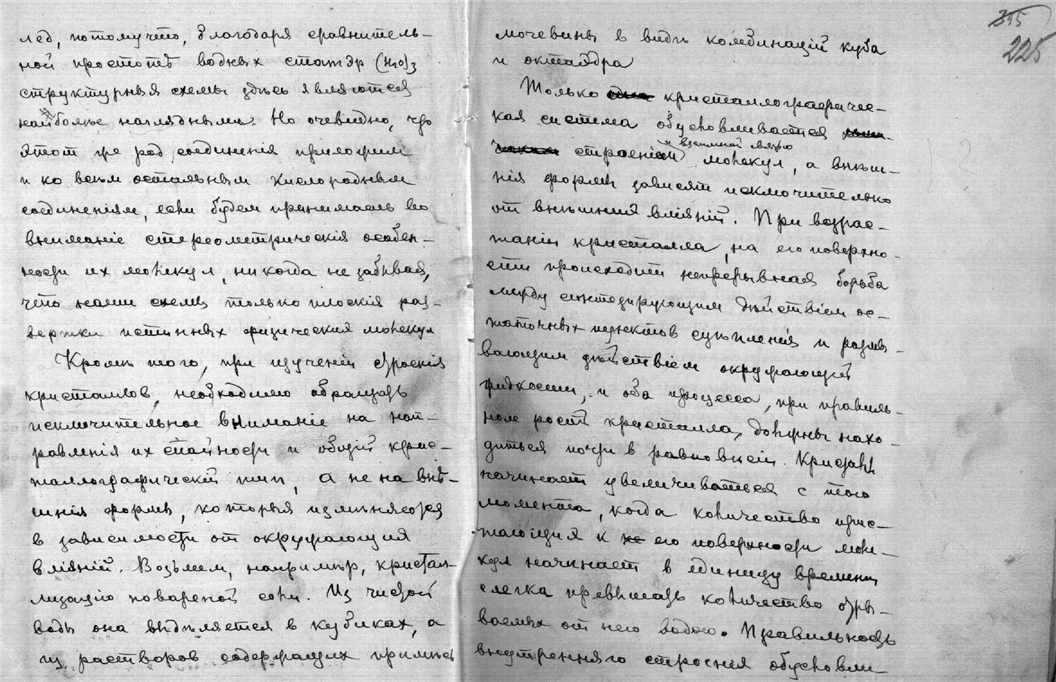 лёд, потому что, благодаря сравнитель-
ной простотѣ водных статэр (H₂O)₃
структурныя схемы здѣсь являются
наиболѣе наглядными. Но очевидно, что
этот же род соединенія приложим
и ко всѣм остальным кислородным
соединеніям, если будем принимать во
вниманіе стереометрическія особен-
ности их молекул, никогда не забывая,
что наши схемы только плоскія раз-
вертки истинных физических молекул
Кромѣ того, при изученіи строенія
кристаллов, необходимо обращать
исключительное вниманіе на нап-
равленія их спайности и общій крис-
таллографическій тип, а не на внѣ-
шнія формы, которыя измѣняются
в зависимости от окружающих
вліяній. Возьмем, напримѣр, кристал-
лизацію поваренной соли. Из чистой
воды она выдѣляется в кубиках, а
из растворов содержащих примѣсь
315
225
мочевины в видѣ комбинацій куба
и октаэдра
Только кристаллографичес-
кая система обусловливается
и взаимной
строеніем молекул, а внѣш-
нія формы зависят исключительно
от внѣшних вліяній. При возрас-
таніи кристалла, на его поверхно-
сти происходит непрерывная борьба
между синтезирующим дѣйствіем ос-
таточных пунктов сцѣпленія и разъѣ-
вающим дѣйствіем окружающей
жидкости, и оба процесса, при правиль-
ном ростѣ кристалла, должны нахо-
диться почти в равновѣсіи. Кристалл
начинает увеличиваться с того
момента, когда количество прис-
тающих к его поверхности моле-
кул начинает в единицу времени
слегка превышать количество отры-
ваемых от него водою. Правильность
внутренняго строенія обусловли-